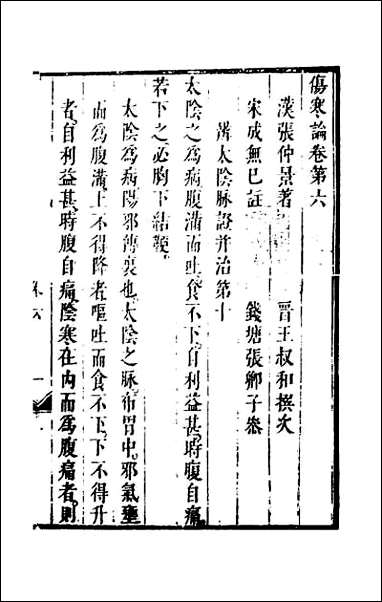 傷寒論卷第六
漢張仲景著 晉王叔和撰次
宋成無已註 錢塘張卿子參
辨太陰脉證并治第十
太陰之爲病腹滿而吐食不下自利益甚時腹自痛
若下之必胸下結鞕
太陰爲病陽邪傳裏也太陰之脉布胃中邪氣壅
而爲腹滿上不得降者嘔吐而食不下下不得升
者自利益甚時腹自痛陰寒在內而爲腹痛者則
六 一